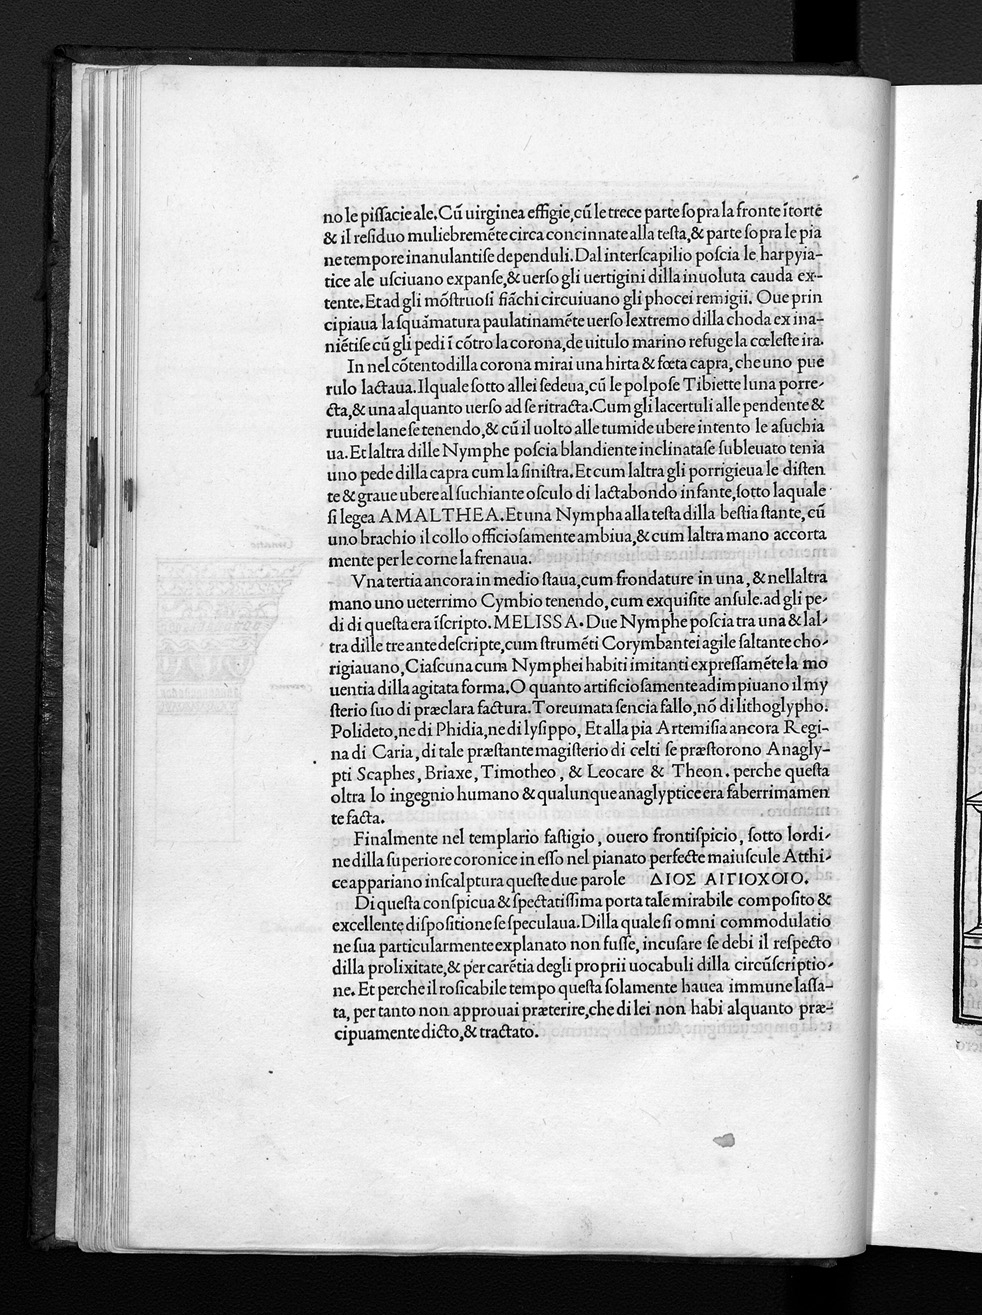 no le pissacie ale. Cū uirginea effigie, cū le trece parte sopra la fronte ītorte
& il residuo muliebremēte circa concinnate alla testa, & parte sopra le pia
ne tempore inanulantise dependuli. Dal interscapilio poscia le harpyia-
tice ale usciuano expanse, & uerso gli uertigini dilla inuoluta cauda ex-
tente. Et ad gli mōstruosi fiāchi circuiuano gli phocei remigii. Oue prin
cipiaua la squāmatura paulatinamēte uerso lextremo dilla choda ex ina-
niētise cū gli pedi ī cōtro la corona, de uitulo marino refuge la cœleste ira.
In nel cōtento dilla corona mirai una hirta & fœta capra, che uno pue
rulo lactaua. Il quale sotto allei sedeua, cū le polpose Tibiette luna porre-
cta, & una alquanto uerso ad se ritracta. Cum gli lacertuli alle pendente &
ruuide lane se tenendo, & cū il uolto alle tumide ubere intento le asuchia
ua. Et laltra dille Nymphe poscia blandiente inclinatase subleuato tenia
uno pede dilla capra cum la sinistra. Et cum laltra gli porrigieua le disten
te & graue ubere al suchiante osculo di lactabondo infante, sotto laquale
si legea AMALTHEA. Et una Nympha alla testa dilla bestia stante, cū
uno brachio il collo officiosamente ambiua, & cum laltra mano accorta
mente per le corne la frenaua.
Vna tertia ancora in medio staua, cum frondature in una, & nellaltra
mano uno ueterrimo Cymbio tenendo, cum exquisite ansule. ad gli pe-
di di questa era īscripto. MELISSA. Due Nymphe poscia tra una & lal-
tra dille tre ante descripte, cum strumēti Corymbantei agile saltante cho-
rigiauano, Ciascuna cum Nymphei habiti imitanti expressamēte la mo
uentia dilla agitata forma. O quanto artificiosamente adimpiuano il my
sterio suo di præclara factura. Toreumata sencia fallo, nō di lithoglypho.
Polideto, ne di Phidia, ne di lysippo, Et alla pia Artemisia ancora Regi-
na di Caria, di tale præstante magisterio di celti se præstorono Anagly-
pti Scaphes, Briaxe, Timotheo, & Leocare & Theon. perche questa
oltra lo ingegnio humano & qualunque anaglyptice era faberrimamen
te facta.
Finalmente nel templario fastigio, ouero frontispicio, sotto lordi-
ne dilla superiore coronice in esso nel pianato perfecte maiuscule Atthi-
ce appariano inscalptura queste due parole ΔΙΟΣ ΑΙΓΙΟΧΟΙΟ.
Di questa conspicua & spectatissima porta tale mirabile composito &
excellente dispositione se speculaua. Dilla quale si omni commodulatio
ne sua particularmente explanato non fusse, incusare se debi il respecto
dilla prolixitate, & per carētia degli proprii uocabuli dilla circūscriptio-
ne. Et perche il rosicabile tempo questa solamente hauea immune lassa-
ta, per tanto non approuai præterire, che di lei non habi alquanto præ-
cipuamente dicto, & tractato.